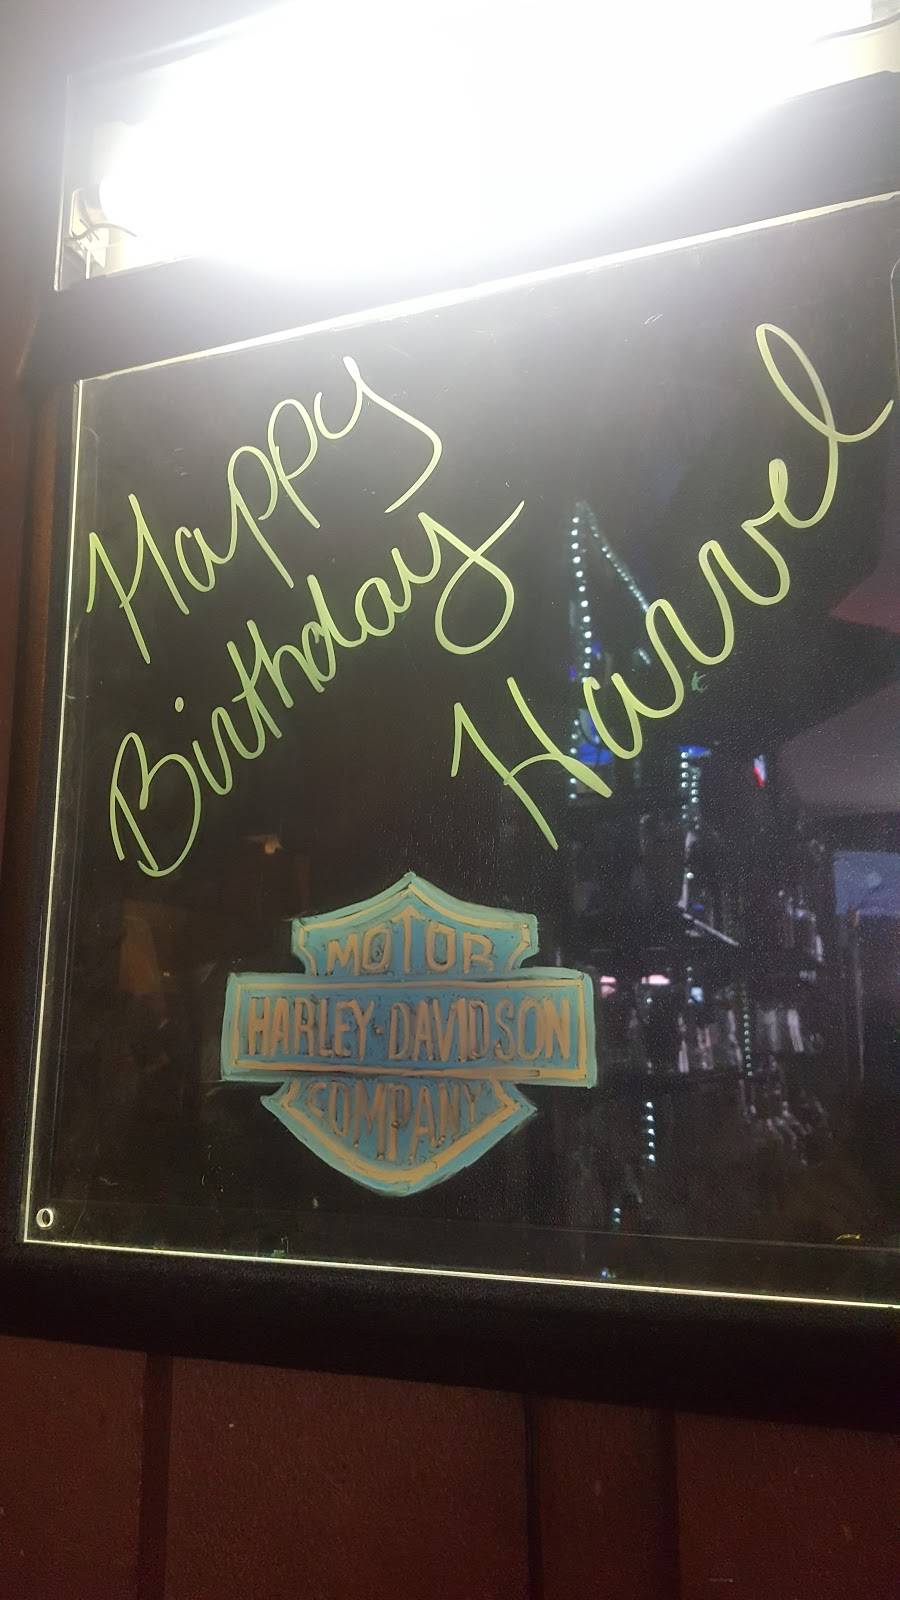 Happy
Birthday
Harvel
MOTOR
HARLEY-DAVIDSON
COMPANY